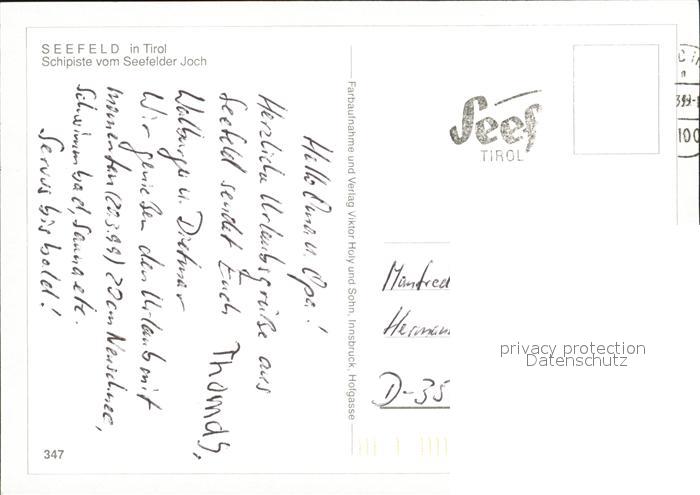 SEEFELD in Tirol
Schipiste vom Seefelder Joch
Hallo Oma u. Opa!
Herzliche Urlaubsgrüße aus
Seefeld sendet Euch Thomas,
Walburga u. Dietmar
Wir genießen den Urlaub mit
momentan (20.3.99) 20cm Neuschnee,
Schwimmbad, Sauna etc.
Servus bis bald!
347
Farbaufnahme und Verlag Viktor Holy und Sohn, Innsbruck, Hofgasse
Seef
TIROL
Manfred
Hermann
D-35
privacy protection
Datenschutz